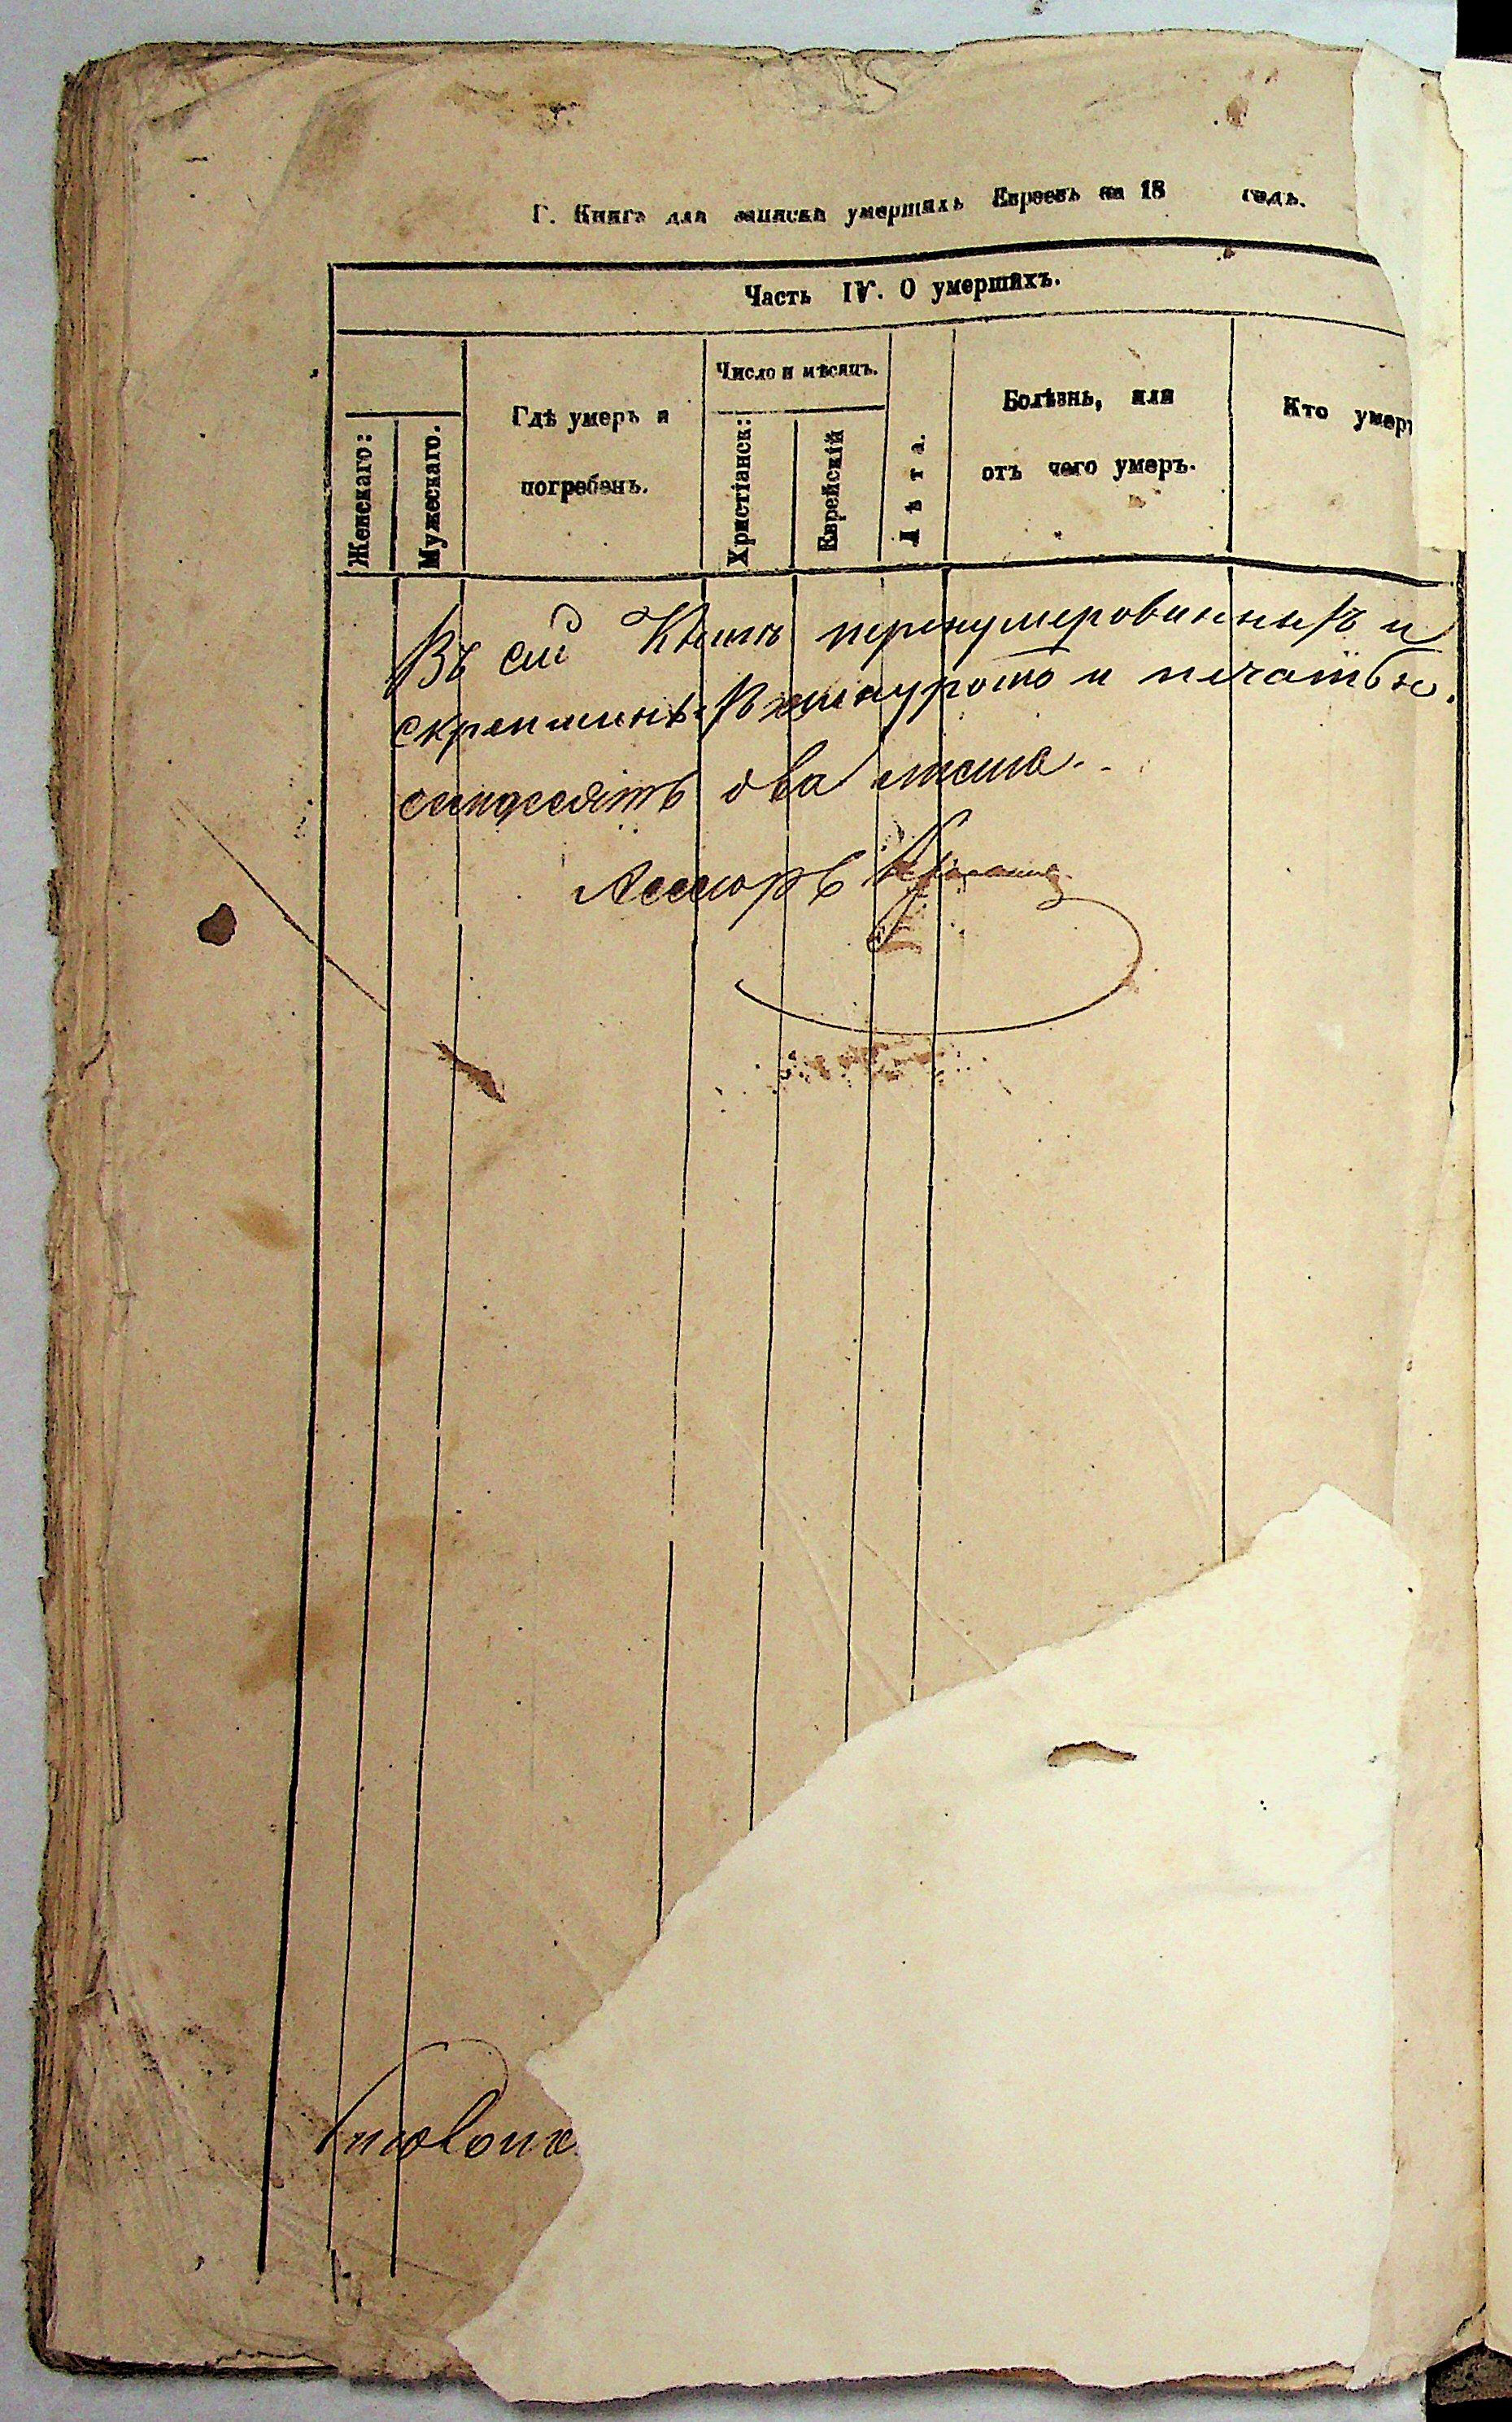 Г. Книга для записки умершихъ Евреевъ на 18 годъ.
Часть IV. О умершихъ.
Женскаго:
Мужескаго.
Гдѣ умеръ и
погребенъ.
Число и мѣсяцъ.
Христіанск:
Еврейскій
Лѣта.
Болѣзнь, или
отъ чего умеръ.
Кто умер
Въ сей Книгѣ перенумерованныхъ и
скрепленныхъ шнуромъ и печатью
семдесятъ два листа.
Асесоръ